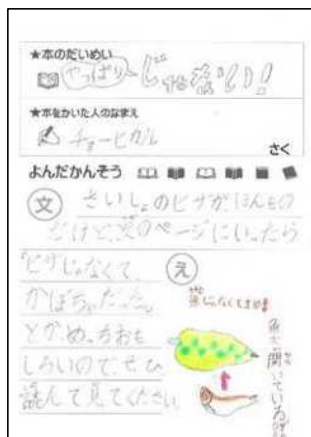 ★本のだいめい
やっぱりじゃない!
★本をかいた人のなまえ
チョーヒカル
さく
よんだかんそう
文
さいしょのピザが、ほんもの
だけど、次のページにいったら
ピザじゃなくて、
かぼちゃだった。
とか、め。ちおも
しろいので、ぜひ
読んで見てください。
え
魚じゃなくて
魚が開いている